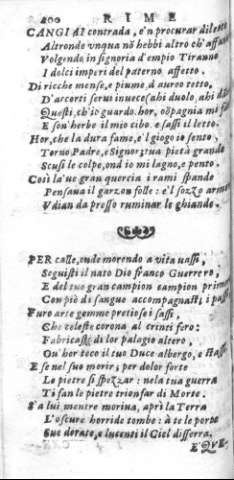 200 RIME
CANGIAI contrada, e'n procurar diletto
Altronde vnqua nõ hebbi altro ch'affanno
Volgendo in signoria d'empio Tiranno
I dolci imperi del paterno affetto.
Di ricche mense, e piume, d'aureo tetto,
D'accorti serui inuece (ahi duolo, ahi
Questi, ch'io guardo. hor, cõpagnia mi
E son' herbe il mio cibo. e sassi il letto.
Hor, che la dura fame, e'l giogo io sento,
Torno Padre, e Signor; tua pietà grande
Scusi le colpe, ond'io mi lagno, e pento.
Così là 've gran quercia i rami spande
Pensaua il garzon folle: e'l sozzo armento
Vdian da presso ruminar le ghiande.
PER calle, onde morendo a vita uassi,
Seguisti il nato Dio franco Guerrero,
E del gran campion campion
Con piè di sangue accompagnasti i passi
Furo arte gemme pretiose i sassi,
Che celeste corona al crin ti fero:
Fabricasti di lor palagio altero,
Ou'hor teco il tuo Duce albergo, e stassi
E se nel suo morir; per dolor forte
Le pietre si spezzar: nela tua guerra
Ti fan le pietre trionfar di Morte.
S'a lui mentre moriua, aprì la Terra
L'oscure horride tombe: à te le porte
Sue dorate, e lucenti il Ciel disserra.